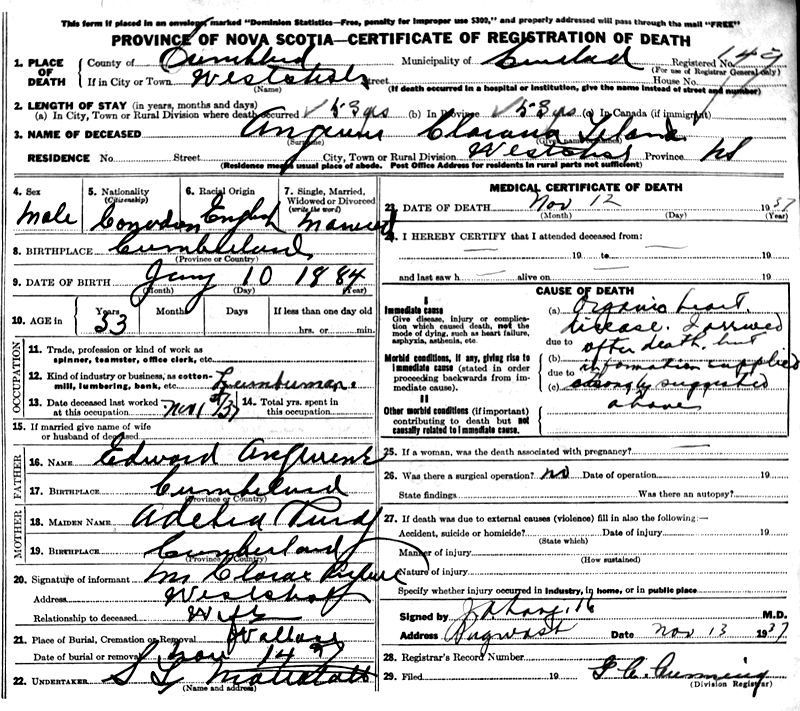 This form if placed in an envelope, marked "Dominion Statistics—Free, penalty for improper use $300," and properly addressed will pass through the mail "FREE"
PROVINCE OF NOVA SCOTIA—CERTIFICATE OF REGISTRATION OF DEATH
1. PLACE OF DEATH
County of
Municipality of
Registered No.
(For use of Registrar General only)
If in City or Town
Street
House No.
(Name)
(If death occurred in a hospital or institution, give the name instead of street and number)
2. LENGTH OF STAY (in years, months and days)
(a) In City, Town or Rural Division where death occurred 53 yrs (b) In Province 53 yrs (c) In Canada (if immigrant)
3. NAME OF DECEASED
(Surname)
RESIDENCE No. Street City, Town or Rural Division Province NS
(Residence means usual place of abode. Post Office Address for residents in rural parts not sufficient)
4. Sex
Male
5. Nationality
(Citizenship)
Canadian
6. Racial Origin
English
7. Single, Married, Widowed or Divorced
(write the word)
Married
8. BIRTHPLACE Cumberland
(Province or Country)
9. DATE OF BIRTH 10 1884
(Month) (Day) (Year)
10. AGE in
Years 53
Months
Days
If less than one day old
hrs. or min.
OCCUPATION
11. Trade, profession or kind of work as spinner, teamster, office clerk, etc.
12. Kind of industry or business, as cotton-mill, lumbering, bank, etc. Lumberman.
13. Date deceased last worked at this occupation
14. Total yrs. spent in this occupation
15. If married give name of wife or husband of deceased
FATHER
16. NAME Edward
17. BIRTHPLACE Cumberland
(Province or Country)
MOTHER
18. MAIDEN NAME
19. BIRTHPLACE Cumberland
(Province or Country)
20. Signature of informant
Address
Relationship to deceased Wife
21. Place of Burial, Cremation or Removal Wallace
Date of burial or removal Nov 14
22. UNDERTAKER
(Name and address)
MEDICAL CERTIFICATE OF DEATH
23. DATE OF DEATH Nov 12 1937
(Month) (Day) (Year)
24. I HEREBY CERTIFY that I attended deceased from:
19 to 19
and last saw h alive on 19
CAUSE OF DEATH
I
Immediate cause
Give disease, injury or complication which caused death, not the mode of dying, such as heart failure, asphyxia, asthenia, etc.
Morbid conditions, if any, giving rise to immediate cause (stated in order proceeding backwards from immediate cause).
II
Other morbid conditions (if important) contributing to death but not causally related to immediate cause.
(a) Organic heart
disease. I arrived
due to after death, but
(b)
due to information supplied
(c) strongly suggested
above
25. If a woman, was the death associated with pregnancy?
26. Was there a surgical operation? no Date of operation 19
State findings Was there an autopsy?
27. If death was due to external causes (violence) fill in also the following:—
Accident, suicide or homicide? Date of injury 19
(State which)
Manner of injury
(How sustained)
Nature of injury
Specify whether injury occurred in industry, in home, or in public place
Signed by M.D.
Address Pugwash Date Nov 13 1937
28. Registrar's Record Number
29. Filed 19
(Division Registrar)